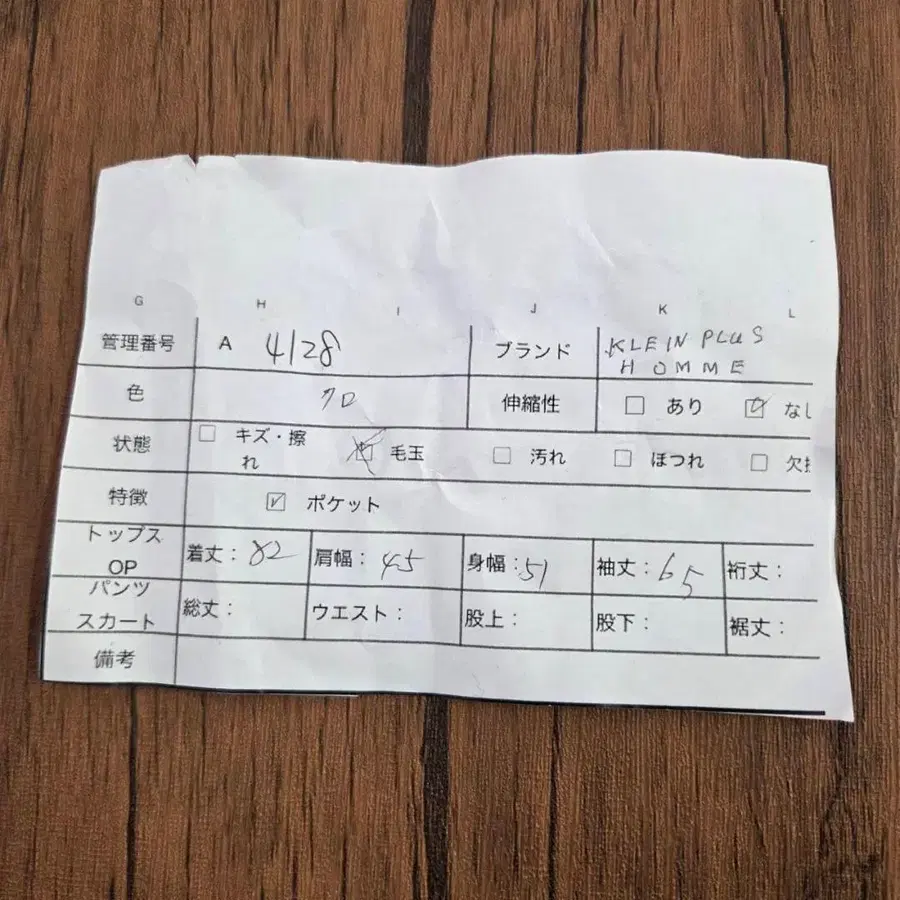 G H I J K L
管理番号 A 4128 ブランド KLEIN PLUS
HOMME
色 クロ 伸縮性 ☐ あり ☑ なし
状態 ☐ キズ・擦
れ 毛玉 ☐ 汚れ ☐ ほつれ ☐ 欠
特徴 ☑ ポケット
トップス
OP 着丈：82 肩幅：45 身幅：51 袖丈：65 裄丈：
パンツ
スカート 総丈： ウエスト： 股上： 股下： 裾丈：
備考